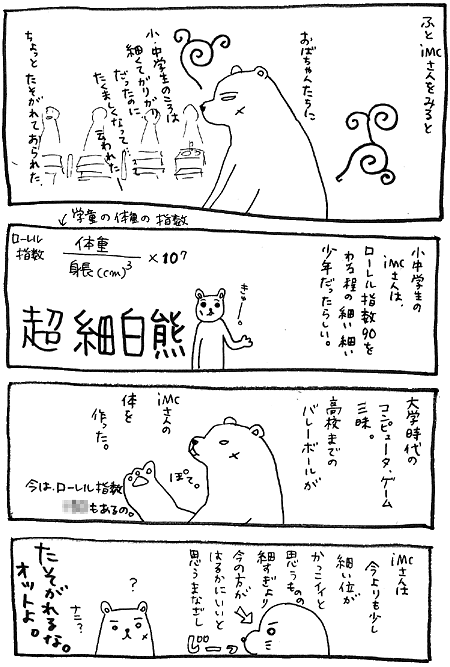 ふと iMCさんをみると
おばちゃんたちに
小・中学生のころは
細くてがりがり
だったのに、
たくましくなって…
と言われた
ちょっとたそがれておられた。
↙学童の体重の指数
ローレル
指数
体重
身長(cm)³
×10⁷
小中学生の
iMCさんは、
ローレル指数90を
わる程の細い細い
少年だったらしい。
きゅー。
超細白熊
大学時代の
コンピュータ、ゲーム
三昧。
高校までの
バレーボールが
iMCさんの
体を
作った。
ぽて。
今は、ローレル指数
もあるの。
iMCさんは
今よりも少し
細い位が
かっこイイと
思うものの
細すぎより
今の方が
はるかにいいと
思うまなざし
じーっ
?
ナニ?
たそがれるな。
オットよ。